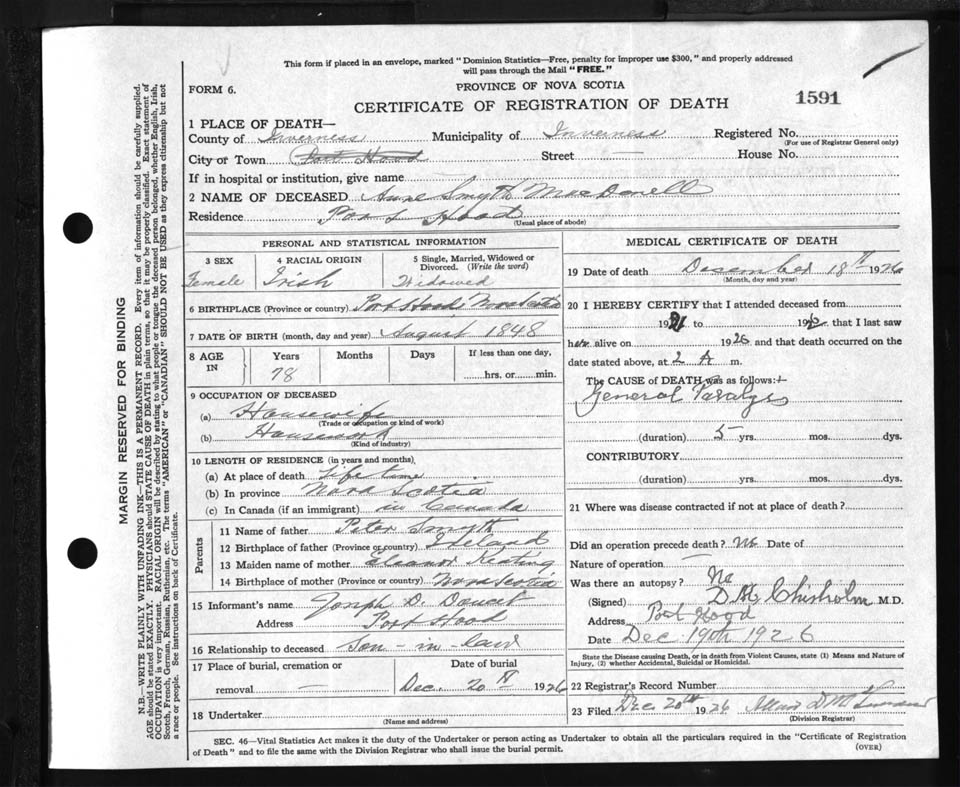 This form if placed in an envelope, marked "Dominion Statistics—Free, penalty for improper use $300," and properly addressed
will pass through the Mail "FREE."
FORM 6.
PROVINCE OF NOVA SCOTIA
CERTIFICATE OF REGISTRATION OF DEATH
1591
1 PLACE OF DEATH—
County of Inverness Municipality of Inverness Registered No.
(For use of Registrar General only)
City or Town Port Hood Street House No.
If in hospital or institution, give name
2 NAME OF DECEASED Anne Smyth MacDonell
Residence Port Hood
(Usual place of abode)
PERSONAL AND STATISTICAL INFORMATION
3 SEX
Female
4 RACIAL ORIGIN
Irish
5 Single, Married, Widowed or
Divorced. (Write the word)
Widowed
6 BIRTHPLACE (Province or country) Port Hood Nova Scotia
7 DATE OF BIRTH (month, day and year) August 1848
8 AGE
IN
Years
78
Months
Days
If less than one day,
hrs. or min.
9 OCCUPATION OF DECEASED
(a) Housewife
(Trade or occupation or kind of work)
(b) Housework
(Kind of industry)
10 LENGTH OF RESIDENCE (in years and months)
(a) At place of death Life time
(b) In province Nova Scotia
(c) In Canada (if an immigrant) in Canada
Parents
11 Name of father Peter Smyth
12 Birthplace of father (Province or country) Ireland
13 Maiden name of mother Eleanor Keating
14 Birthplace of mother (Province or country) Nova Scotia
15 Informant's name Joseph D. Doucet
Address Port Hood
16 Relationship to deceased Son-in-law
17 Place of burial, cremation or
removal —
Date of burial
Dec. 20th 1926
18 Undertaker
(Name and address)
MEDICAL CERTIFICATE OF DEATH
19 Date of death December 18th 1926
(Month, day and year)
20 I HEREBY CERTIFY that I attended deceased from
1921 to 1926, that I last saw
her alive on 1926 and that death occurred on the
date stated above, at 2 A m.
The CAUSE OF DEATH was as follows:
General Paralysis
(duration) 5 yrs. mos. dys.
CONTRIBUTORY
(duration) yrs. mos. dys.
21 Where was disease contracted if not at place of death?
Did an operation precede death? No Date of
Nature of operation
Was there an autopsy? No
(Signed) D M Chisholm M.D.
Address Port Hood
Date Dec 19th 1926
State the Disease causing Death, or in death from Violent Causes, state (1) Means and Nature of
Injury, (2) whether Accidental, Suicidal or Homicidal.
22 Registrar's Record Number
23 Filed Dec 20th 1926
(Division Registrar)
SEC. 46—Vital Statistics Act makes it the duty of the Undertaker or person acting as Undertaker to obtain all the particulars required in the "Certificate of Registration
of Death" and to file the same with the Division Registrar who shall issue the burial permit.
(OVER)
MARGIN RESERVED FOR BINDING
N.B.—WRITE PLAINLY WITH UNFADING INK—THIS IS A PERMANENT RECORD. Every item of information should be carefully supplied.
AGE should be stated EXACTLY. PHYSICIANS should STATE CAUSE OF DEATH in plain terms, so that it may be properly classified. Exact statement of
OCCUPATION is very important. RACIAL ORIGIN will be described by stating to what people or tongue the deceased person belonged, whether English, Irish,
Scotch, French, German, Russian, Ruthenian, etc. The terms "AMERICAN" or "CANADIAN" SHOULD NOT BE USED as they express citizenship but not
a race or people. See instructions on back of Certificate.